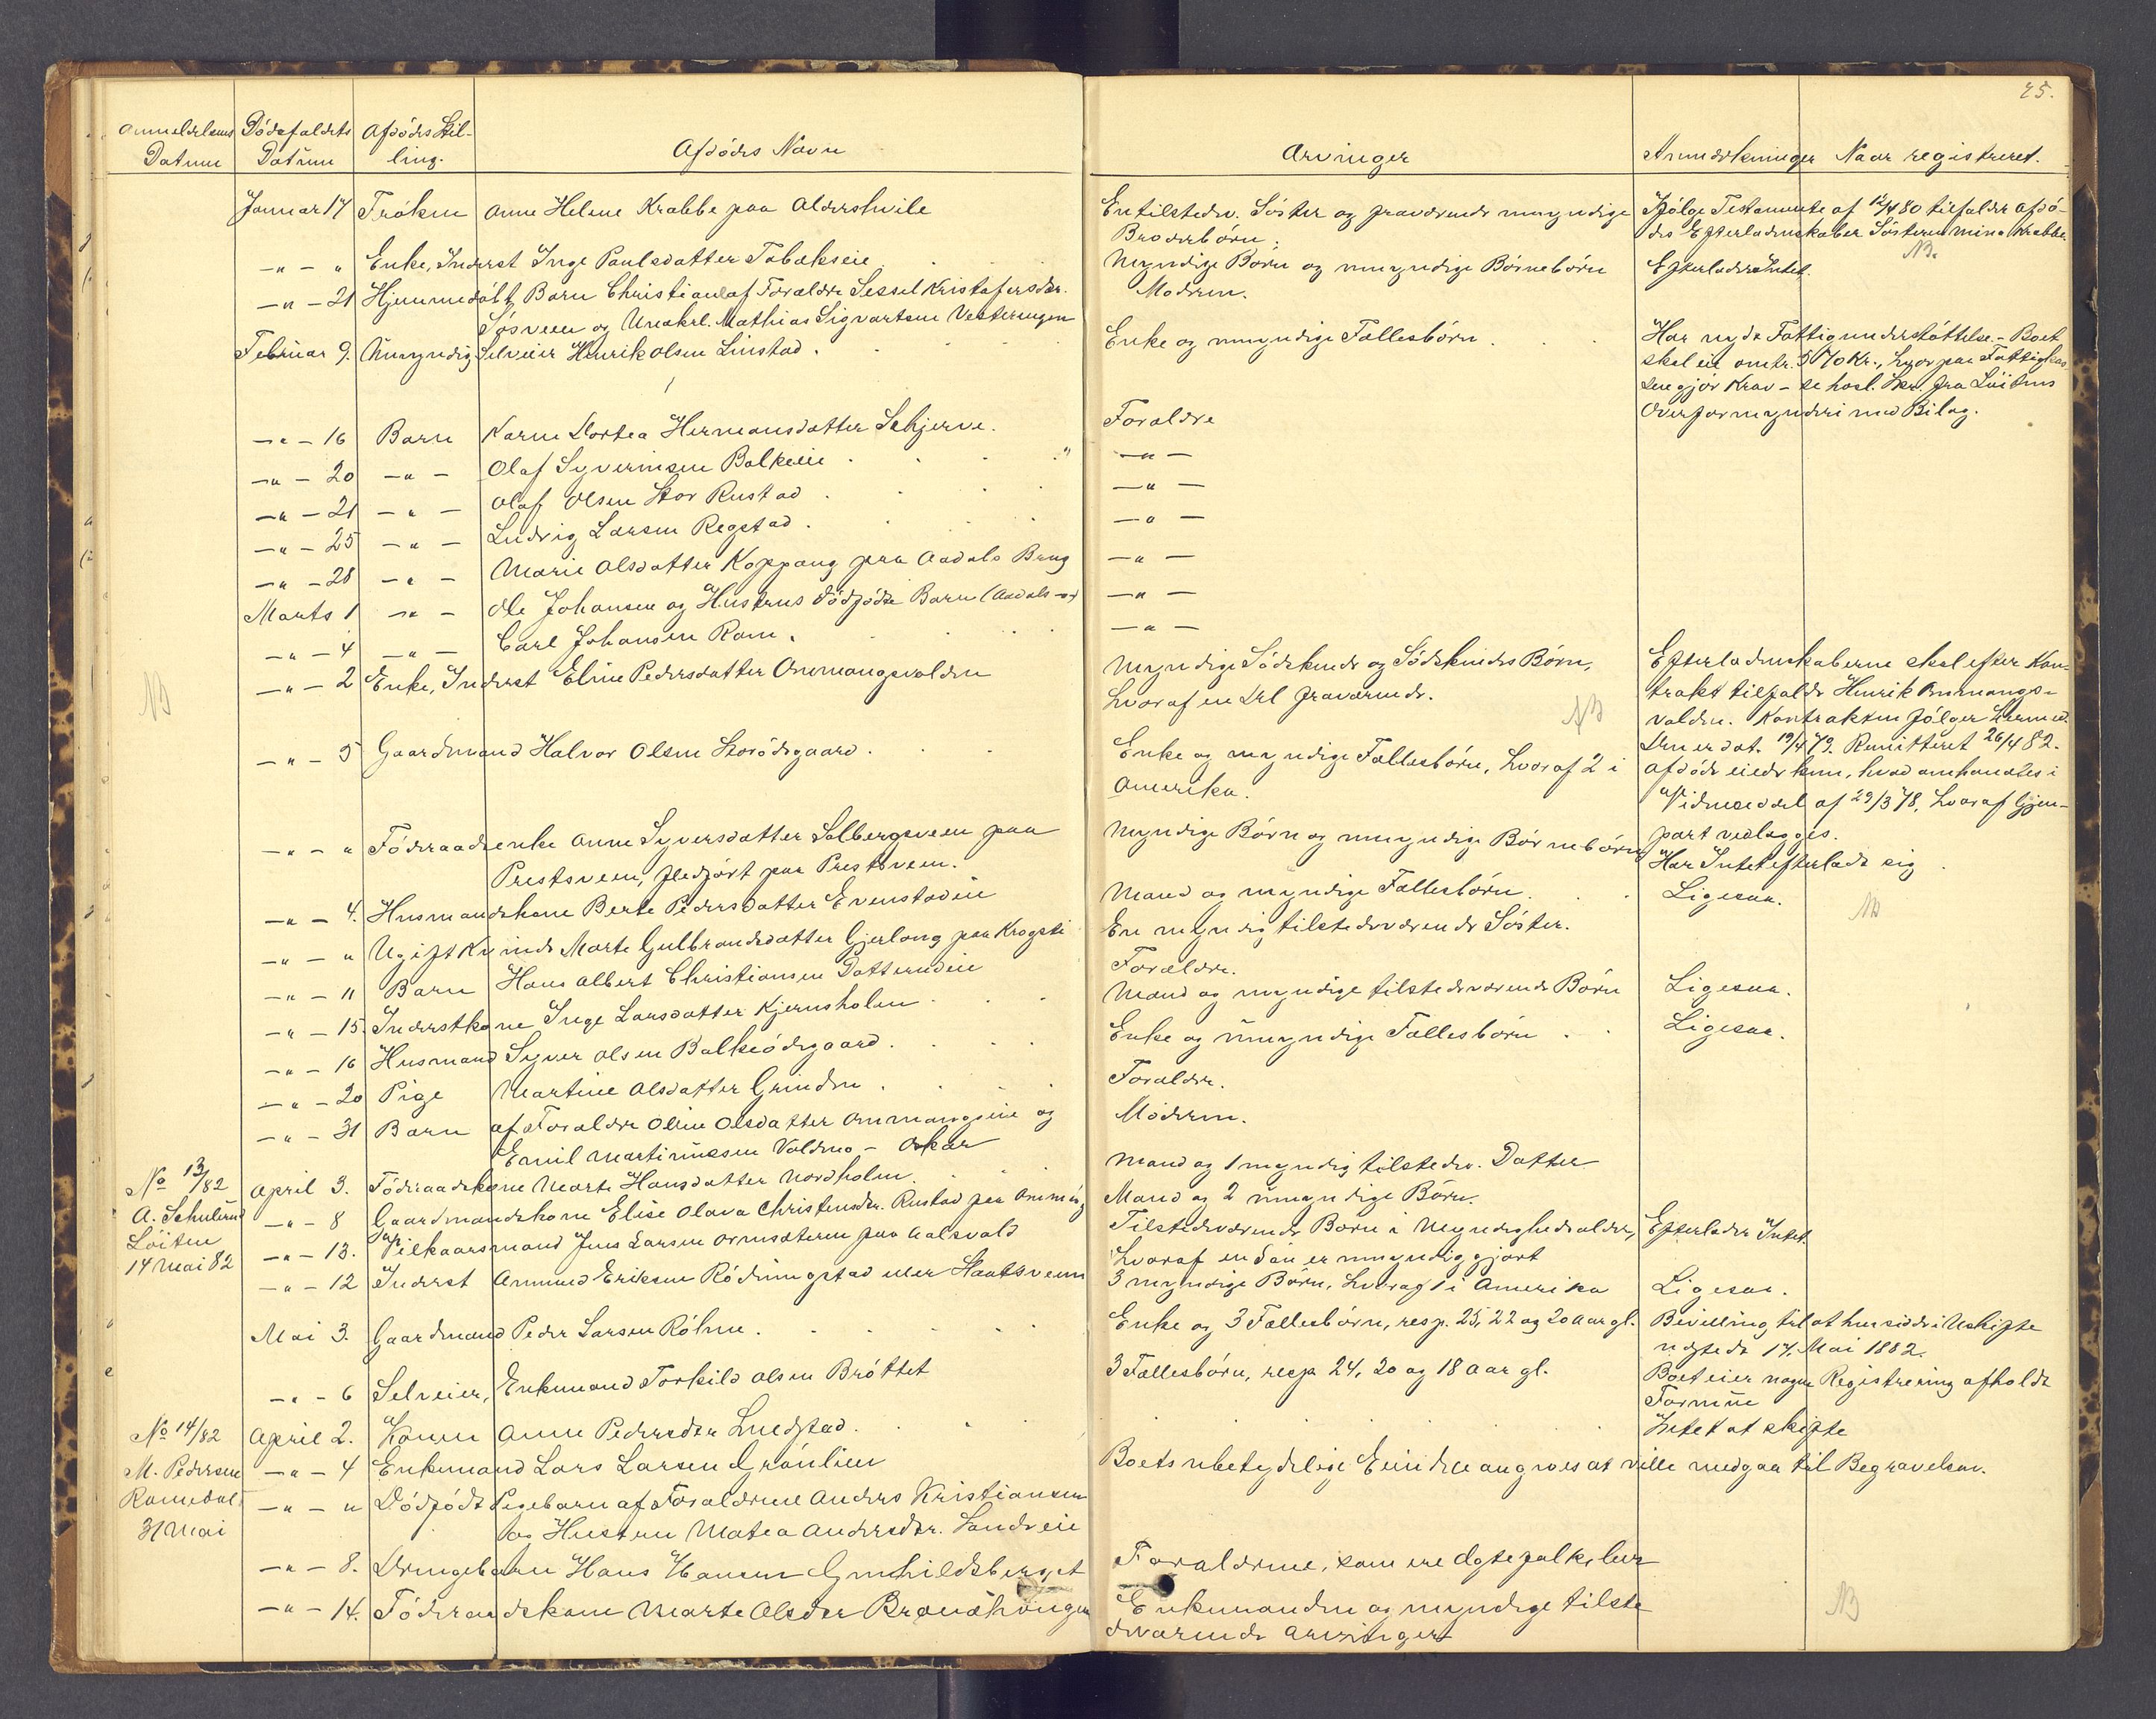 25.
Anmeldelsens Datum Dödsfaldets Datum Afdödes Stilling. Afdödes Navn Arvinger Anmærkninger Naar registreret.
Januar 17 Fröken Anne Helene Krabbe paa Aldershvile Entilstedev. Söster og fraværende myndige Ifölge Testamente af 12/4 80 tilfalder afdö-
Broderbörn. des Efterladenskaber Sösteren Mina Krabbe.
NB.
-"- " Enke, Inderst Inge Paulsdatter Tobakseie Myndige Börn og umyndige Börnebörn Efterlader Intet.
-"- 21 Hjemmedöbt Barn Christian af Forældre Sessel Kristofersdtr. Moderen.
Sösveen og Unakrl. Mathias Sigvartsen Vesteringen
Februar 9. Umyndig Selveier Henrik Olsen Linstad. Enke og umyndige Fællesbörn Har nydt Fattigunderstöttelse. - Boet
skal eie omtr. 270 Kr., hvorpaa Fattigkas-
sen gjör Krav - se hosl. Skr. fra Löitens
Overformynderi med Bilag.
-"- 16 Barn Karen Dortea Hermansdatter Schjerve. Forældre
-"- 20 -"- Olaf Syverinsen Balkeeie -"-
-"- 21 -"- Olaf Olsen Stor Rustad -"-
-"- 25 -"- Ludvig Larsen Regstad. -"-
-"- 28 -"- Marie Olsdatter Koppang paa Aadals Brug -"-
Marts 1 -"- Ole Johansen og Hustrus dödfödte Barn (Aadals -"-) -"-
-"- 4 -"- Carl Johansen Rom. -"-
NB
-"- 2 Enke, Inderst Eline Pedersdatter Ommangsvolden Myndige Södskende og Södskendes Börn, Efterladenskaberne skal efter Kon-
hvoraf en Del fraværende. trakt tilfalde Henrik Ommangs-
NB
volden. Kontrakten fölger hermed.
Den er dat. 19/4 79. Remitteret 26/4 82.
-"- 5 Gaardmand Halvor Olsen Storödegaard. Enke og myndige Fællesbörn, hvoraf 2 i Afdöde eiede kun, hvad omhandles i
Amerika. Vidneseddel af 29/3 78, hvoraf Gjen-
part vedlægges.
-"- " Föderaadsenke Anne Syversdatter Solbergsveen paa Myndige Börn og umyndige Börnebörn Har Intet efterladt sig
Prestsveen, fledfört paa Prestsveen.
-"- 4. Husmandskone Berte Pedersdatter Evenstadeie Mand og myndige Fællesbörn Ligesaa.
-"- " Ugift Kvinde Marte Gulbrandsdatter Gjerlang paa Krogsti En myndig tilstedeværende Söster.
NB
-"- 11 Barn Hans Albert Christiansen Dotterudeie Forældre.
-"- 15. Inderstkone Inge Larsdatter Kjernsholen Mand og myndige tilstedeværende Börn Ligesaa.
-"- 16 Husmand Syver Olsen Balkeödegaard. Enke og umyndige Fællesbörn Ligesaa.
-"- 20 Pige Martine Olsdatter Grinden Forældre.
-"- 31 Barn af Forældre Oline Olsdatter Ommangseie og Moderen.
Emil Martiniusen Voldmo - Oskar
No 13/82 April 3. Föderaadskone Marte Hansdatter Nordholen. Mand og 1 myndig tilstedev. Datter
A. Schulerud -"- 8 Gaardmandskone Elise Olava Christensdtr. Rustad paa Ommang Mand og 2 umyndige Börn.
Löiten -"- 13. Vilkaarsmand Jens Larsen Ormsæteren paa Aalsvold Tilstedeværende Börn i Myndighedsalder, Efterlader Intet.
14 Mai 82 hvoraf en Sön er umyndiggjort
-"- 12 Inderst Amund Eriksen Rödningstad eller Skaatsveen 3 myndige Börn, hvoraf 1 i Amerika Ligesaa.
Mai 3. Gaardmand Peder Larsen Röhne. Enke og 3 Fællesbörn, resp. 25, 22 og 20 Aar gl. Bevilling til at hensidde i Uskifte
udstedt 17. Mai 1882.
-"- 6 Selveier, Enkemand Torkild Olsen Bröttet 3 Fællesbörn, resp 24, 20 og 18 Aar gl. Boet eier nogen Registrering afholdt
Formue
No 14/82 April 2. Konen Anne Pedersdtr Lundstad. Intet at skifte
M. Pedersen -"- 4 Enkemand Lars Larsen Grönlien Boets ubetydelige Eiendele angives at ville medgaa til Begravelsen.
Romedal -"- " Dödfödt Pigebarn af Forældrene Anders Kristiansen
31 Mai og Hustru Matea Andersdtr. Sandeie
-"- 8. Drengebarn Hans Hansen Gunhildsberget Forældrene, som ere Ægtefolk, lever
-"- 14. Föderaadskone Marte Olsdtr Brænshaugen Enkemanden og myndige tilste
deværende Arvinger
NB